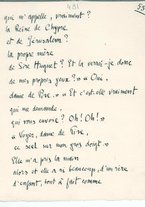 481
qui m'appelle, vraiment ?
la Reine de Chypre
et de Jérusalem ?
la propre mère
de Sire Huguet ? Et la verrai-je donc
de mes propres yeux ? » « Oui,
dame de Pire. » « Et c'est elle vraiment
qui me demande,
qui vous envoie ? Oh ! Oh ! »
« Voyez, dame de Pire,
ce scel sur mon gros doigt. »
Elle m'a pris la main
alors et elle a ri beaucoup, d'un rire
d'enfant, tout à fait comme